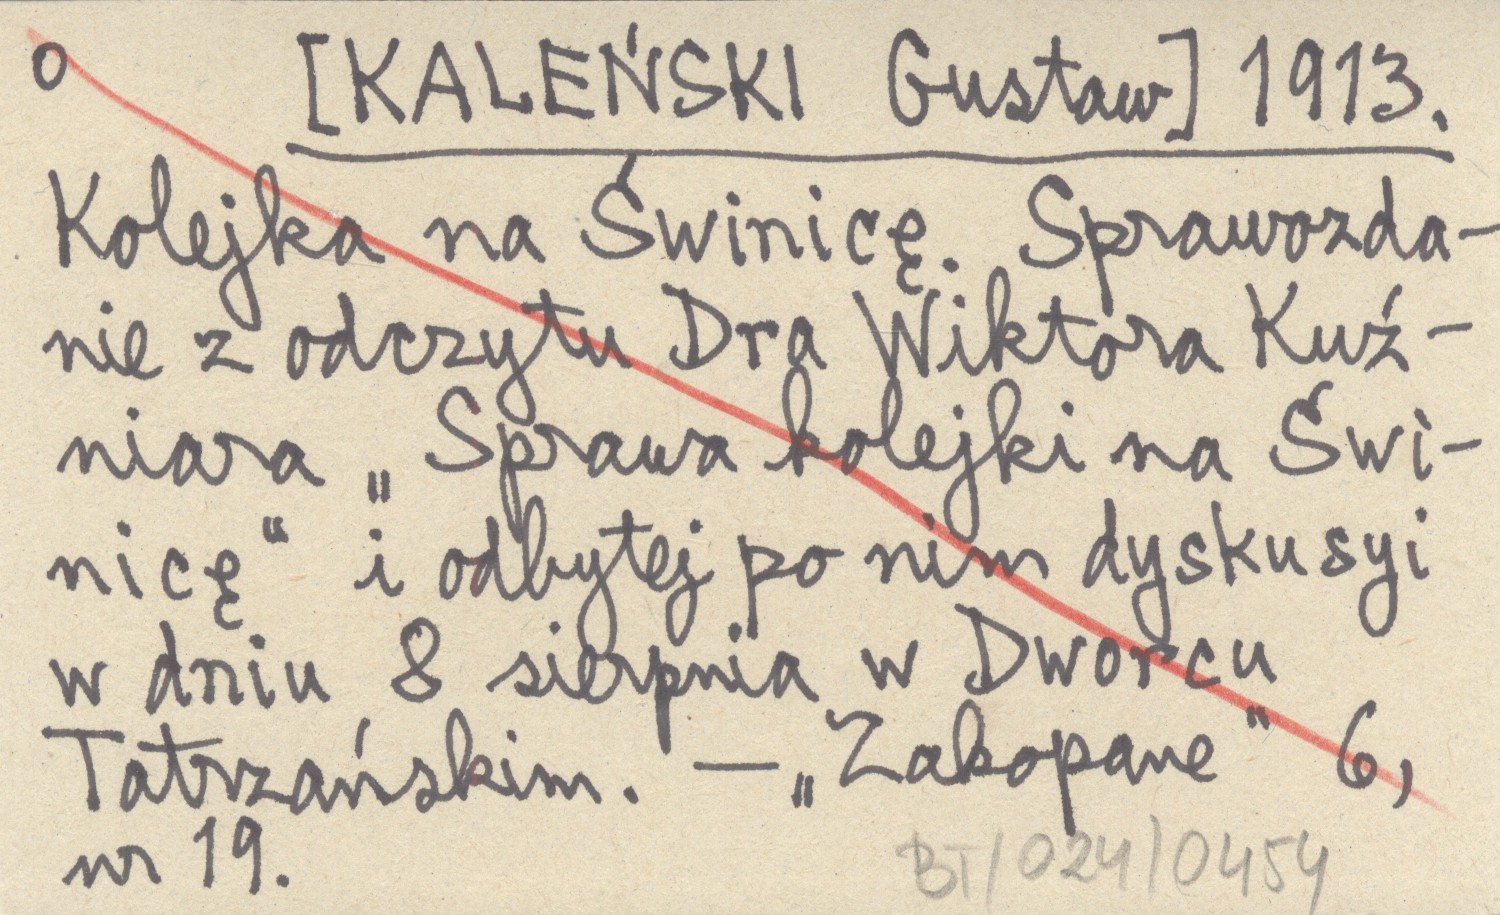 o [KALEŃSKI Gustaw] 1913.
Kolejka na Świnicę. Sprawozda-
nie z odczytu Dra Wiktora Kuź-
niara „Sprawa kolejki na Świ-
nicę“ i odbytej po nim dyskusyi
w dniu 8 sierpnia w Dworcu
Tatrzańskim. — „Zakopane“ 6,
nr 19.
BT/024/0454